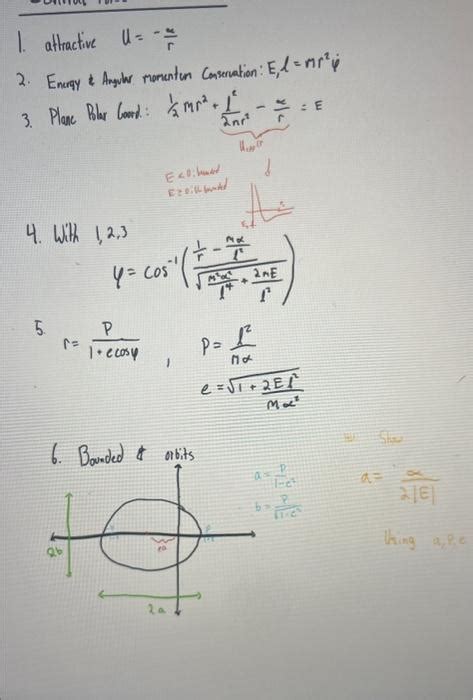 1. attractive U = -α/r
2. Energy & Angular momentum Conservation: E, l = mr²φ̇
3. Plane Polar Coord.: ½mr² + l²/2mr² - α/r = E
E<0: bounded
E≥0:
4. With 1,2,3
φ = cos⁻¹((1/r - mα/l²)/√(m²α²/l⁴ + 2mE/l²))
5. r = P/(1+ecosφ) , P = l²/mα
e = √(1 + 2El²/mα²)
6. Bounded & orbits
a = P/(1-e²)
b = P/√(1-e²)
Show
a = α/2|E|
Using a, P, e
2b
ea
2a